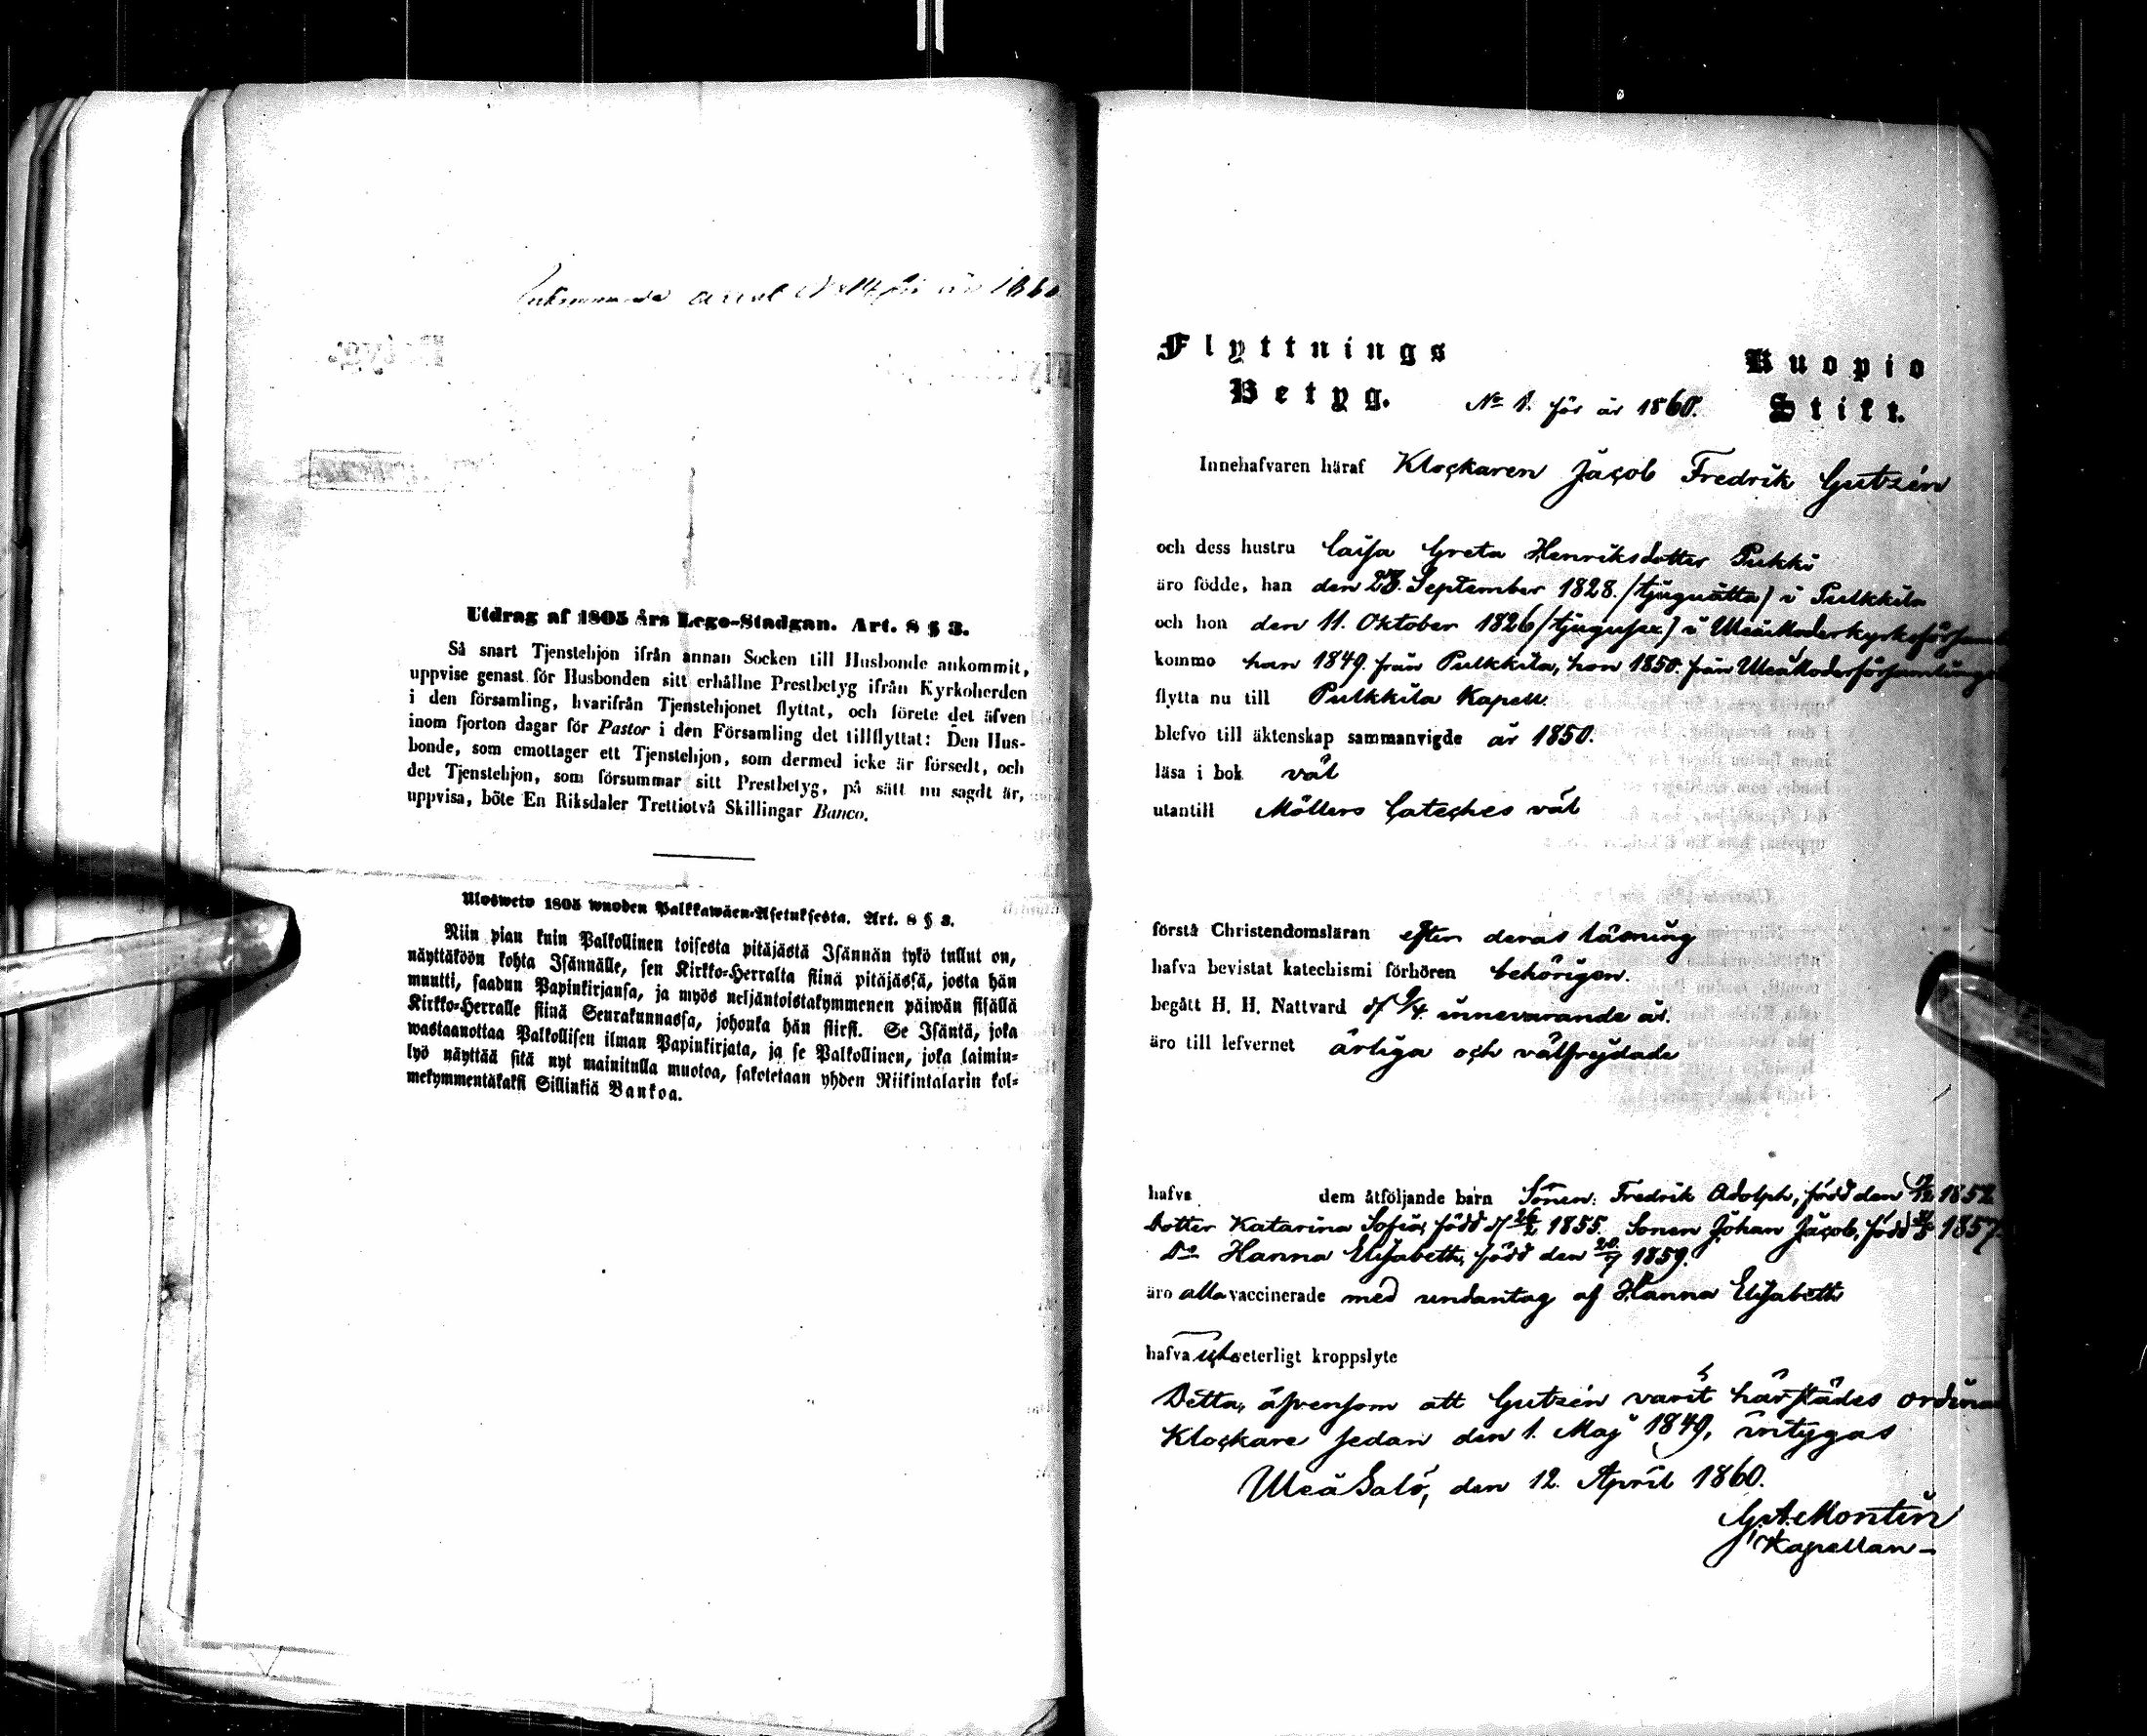 1860
Utdrag af 1805 års Lego-Stadgan. Art. 8 § 3.
Så snart Tjenstehjon ifrån annan Socken till Husbonde ankommit,
uppvise genast för Husbonden sitt erhållne Prestbetyg ifrån Kyrkoherden
i den församling, hvarifrån Tjenstehjonet flyttat, och förete det äfven
inom fjorton dagar för Pastor i den Församling det tillflyttat: Den Hus-
bonde, som emottager ett Tjenstehjon, som dermed icke är försedt, och
det Tjenstehjon, som försummar sitt Prestbetyg, på sätt nu sagdt är,
uppvisa, böte En Riksdaler Trettiotvå Skillingar Banco.
Ulosweto 1805 wuoden Palkkawäen-Asetuksesta. Art. 8 § 3.
Niin pian kuin Palkollinen toisesta pitäjästä Isännän tykö tullut on,
näyttäköön kohta Isännälle, sen Kirkko-Herralta siinä pitäjässä, josta hän
muutti, saadun Papinkirjansa, ja myös neljäntoistakymmenen päiwän sisällä
Kirkko-Herralle siinä Seurakunnassa, johonka hän siirsi. Se Isäntä, joka
wastaanottaa Palkollisen ilman Papinkirjata, ja se Palkollinen, joka laimin-
lyö näyttää sitä nyt mainitulla muotoa, sakotetaan yhden Riikintalarin kol-
mekymmentäkaksi Sillinkiä Bankoa.
Flyttnings Kuopio
Betyg. No 1. för år 1860. Stift.
Innehafvaren häraf Klockaren Jacob Fredrik Gutzén
och dess hustru Caisa Greta Henriksdotter Pukki
äro födde, han den 28. September 1828. (tjuguåtta) i Pulkkila
och hon den 11. Oktober 1826 (tjugusex) i Uleå Moderkyrkoförsaml
kommo han 1849. från Pulkkila, hon 1850. från Uleå Moderförsamling
flytta nu till Pulkkila Kapell.
blefvo till äktenskap sammanvigde år 1850.
läsa i bok väl
utantill Möllers Cateches väl
förstå Christendomsläran efter deras läsning
hafva bevistat katechismi förhören behörigen.
begått H. H. Nattvard d. 9/4. innevarande år.
äro till lefvernet ärliga och välfrejdade
hafva dem åtföljande barn Sonen: Fredrik Adolph, född den 1852
Dotter Katarina Sofia, född d. 1855. Sonen Johan Jacob, född 1857.
Do Hanna Elisabeth, född den 1859.
äro alla vaccinerade med undantag af Hanna Elisabeth
hafva veterligt kroppslyte
Detta, äfvensom att Gutzén varit härstädes ordina
Klockare sedan den 1. Maj 1849, intygas
Uleå Salo, den 12. April 1860.
G. A. Montin
Kapellan